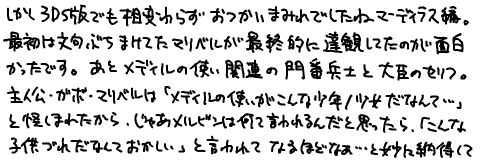 しかし3DS版でも相変わらずおつかいまみれでしたねマーディラス編。
最初は文句ぶちまけてたマリベルが最終的に達観してたのが面白
かったです。あとメディルの使い関連の門番兵士と大臣のセリフ。
主人公・ガボ・マリベルは「メディルの使いがこんな少年/少女だなんて…」
と怪しまれたから、じゃあメルビンは何て言われるんだと思ったら、「こんな
子供づれだなんておかしい」と言われてなるほどなぁ…と妙に納得して